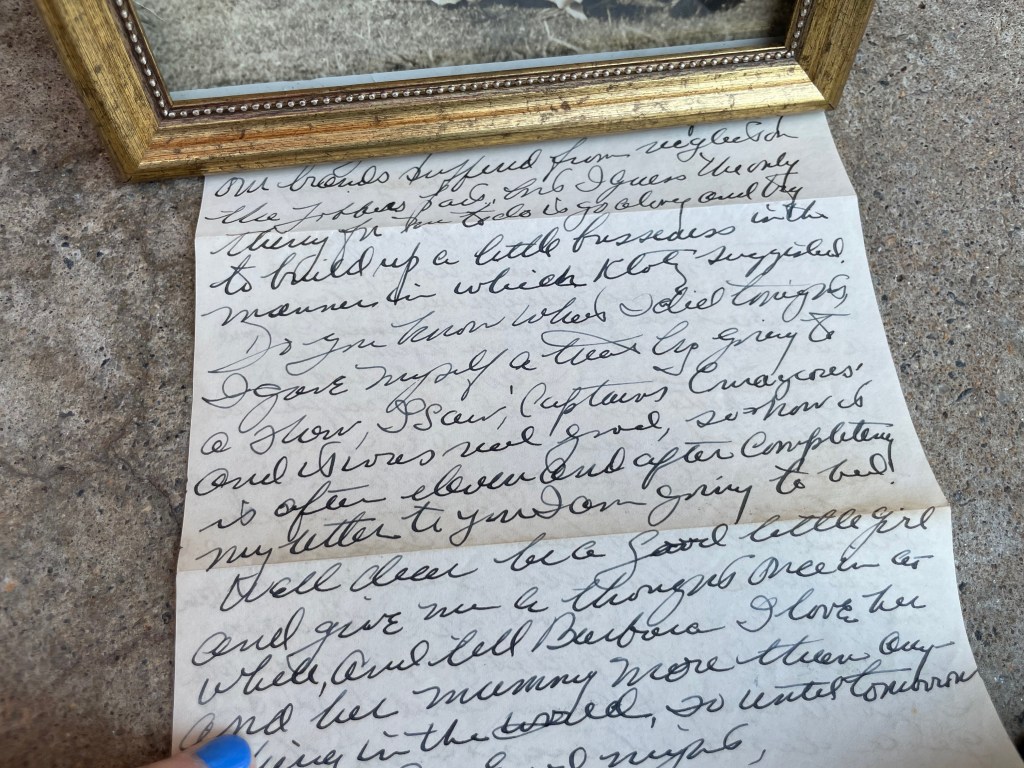 our brands suffered from neglect in
the jobbers fact, but I guess the only
thing for me to do is go along and try
to build up a little bussedess in the
manner in which Klotz suggested.
Do you know what I did tonight,
I gave myself a treat by going to
a show, I saw, 'Captains Courageous'
and it was real good, so now it
is after eleven and after completeing
my letter to you I am going to bed.
Well dear be a good little girl
and give me a thought once in a
while, and tell Barbara I love her
and her mummy more than any-
thing in the world, so until tomorrow
good night,